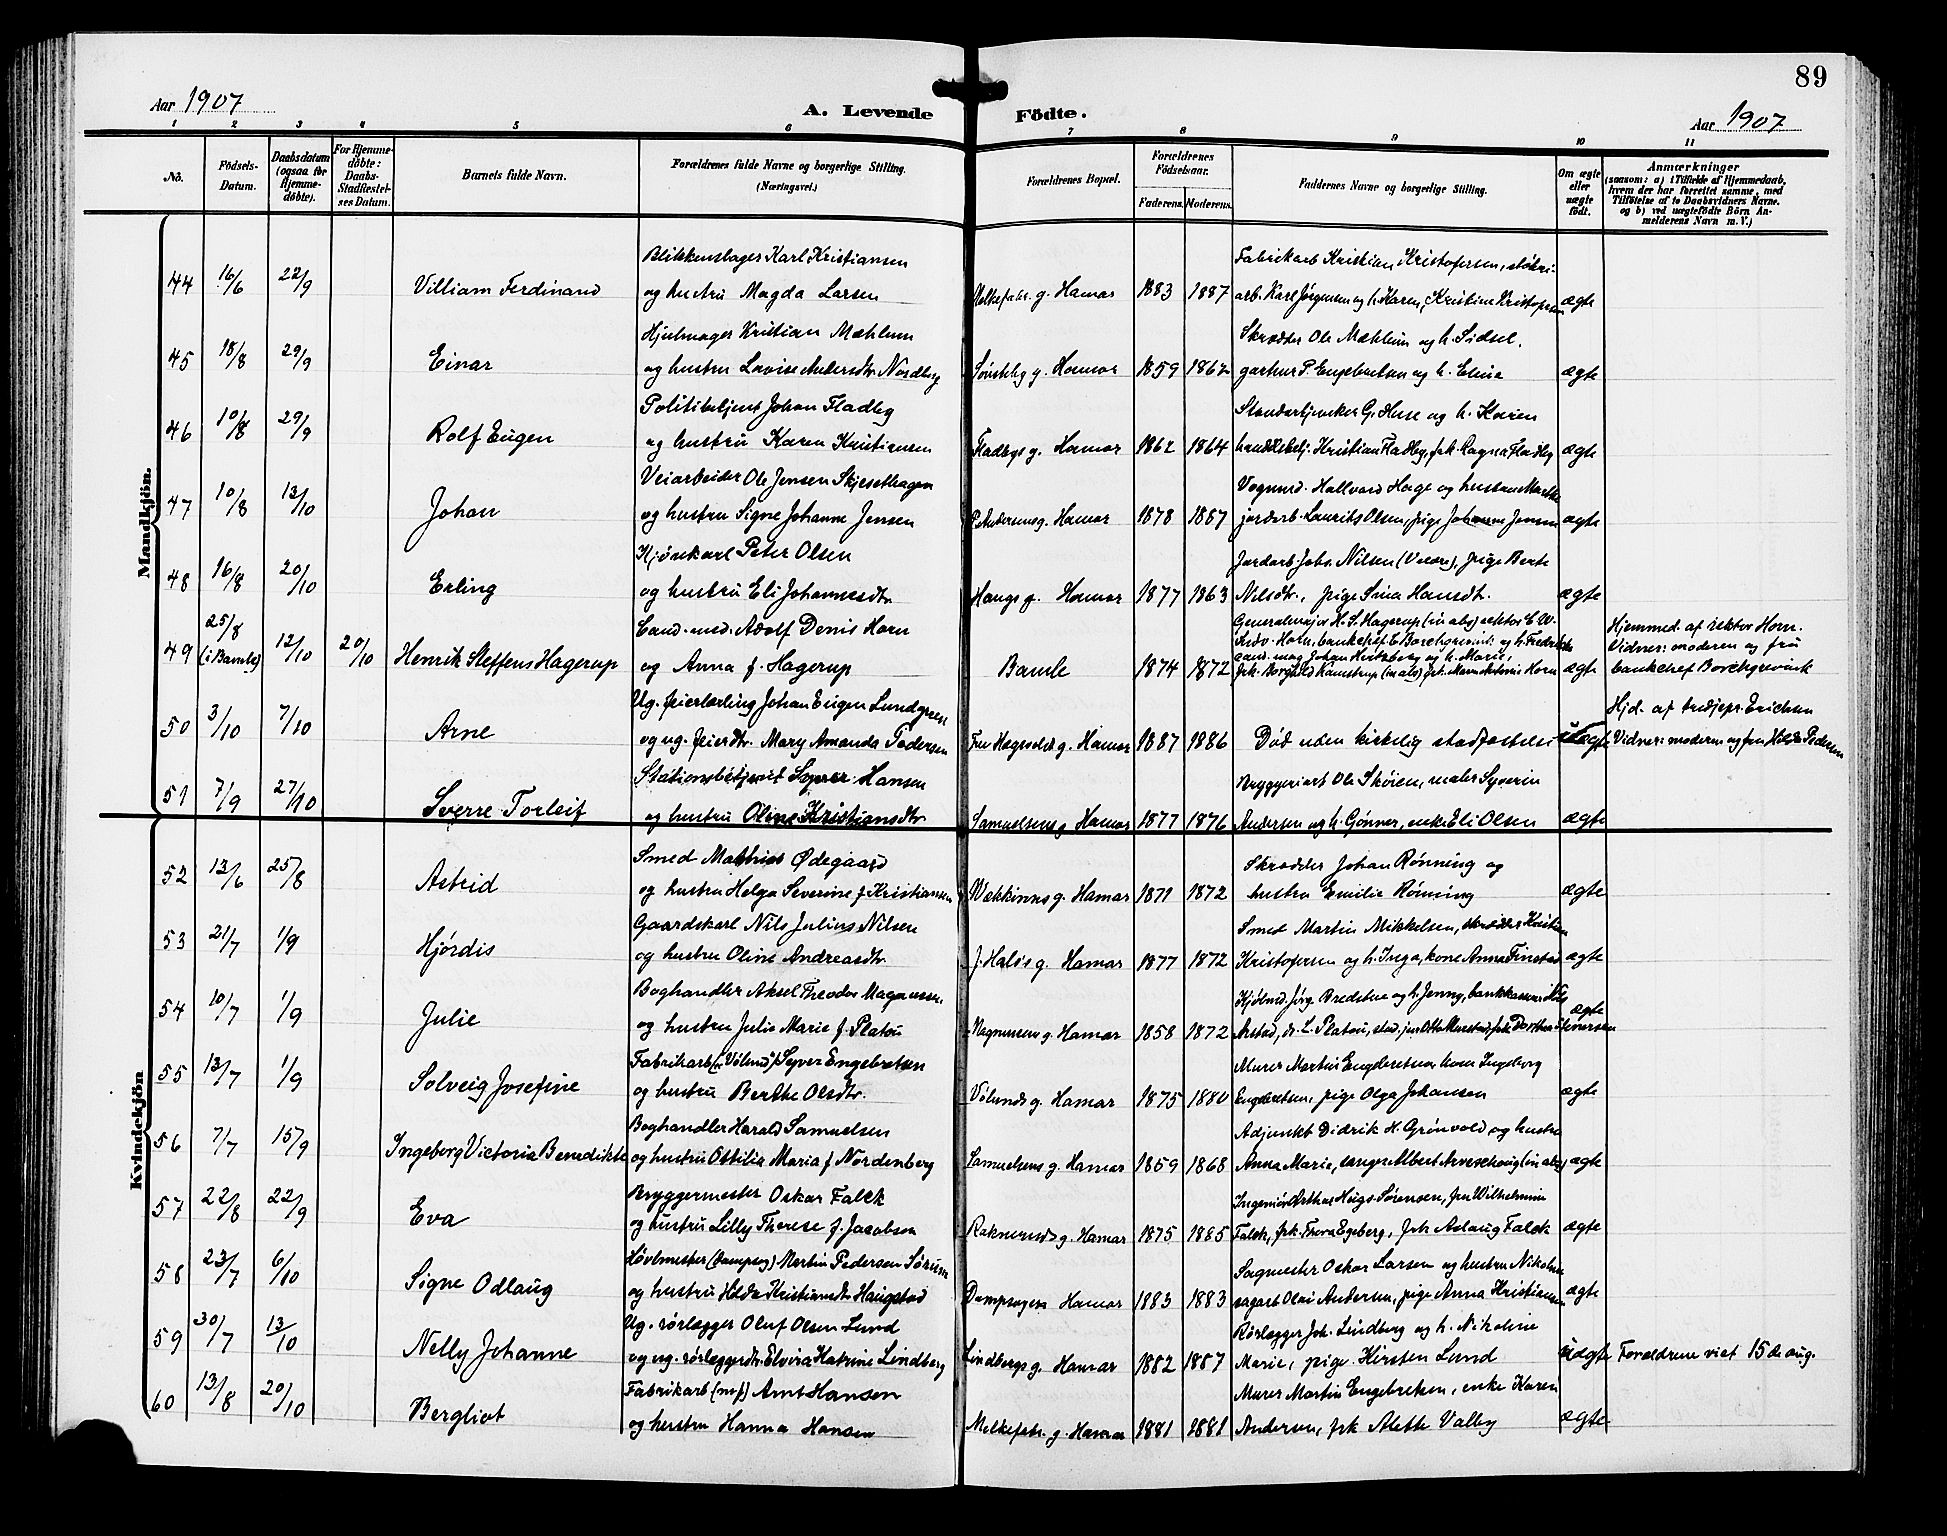 89
Aar 1907
A. Levende Födte.
Aar 1907
1 2 3 4 5 6 7 8 9 10 11
No.
Födsels-Datum.
Daabsdatum (ogsaa for Hjemmedöbte).
For Hjemmedöbte: Daabs-Stadfæstelses Datum.
Barnets fulde Navn.
Forældrenes fulde Navne og borgerlige Stilling. (Næringsvei.)
Forældrenes Bopæl.
Forældrenes Födselsaar.
Faderens. Moderens.
Faddernes Navne og borgerlige Stilling.
Om ægte eller uægte födt.
Anmærkninger
(saasom: a) i Tilfælde af Hjemmedaab, hvem der har forrettet samme, med Tilföielse af to Daabsvidners Navne, og b) ved uægtefödte Börn Anmelderens Navn m. V.)
Mandkjön.
Blikkenslager Karl Kristiansen Fabrikarb Kristian Kristofersen,
44 16/6 22/9 Villiam Ferdinand og hustru Magda Larsen Melkefabr. g. Hamar 1883 1887 arb. Karl Jørgensen og h. Karen, Kristine Kristofersen ægte
Hjulmager Kristian Mæhlum Skrædder Ole Mæhlum og h. Sidsel.
45 18/8 29/9 Einar og hustru Lovise Andersdtr. Nordberg g. Hamar 1859 1862 P. Engebretsen og h. Elina ægte
Politibetjent Johan Fladby G. Huse og h. Karen
46 10/8 29/9 Rolf Eugen og hustru Karen Kristiansen Fladbys g. Hamar 1862 1864 Kristian Fladby, frk. Ragna Fladby ægte
Veiarbeider Ole Jensen Skjesethagen Vognmd. Hallvard Hage og hustru Marthe
47 10/8 13/10 Johan og hustru Signe Johanne Jensen P. Andersens g. Hamar 1878 1887 jordarb. Laurits Olsen, pige Johanne Jensen ægte
Kjørekarl Peter Olsen Jordarb. Johs. Nilsen, pige Berte
48 16/8 20/10 Erling og hustru Eli Johannesdtr. Haugs g. Hamar 1877 1863 Nilsdtr., pige Sina Hansdtr. ægte
25/8 Cand. med. Adolf Denis Horn Generalmajor H. S. Hagerup (in abs) rektor E. W.
Horn, bankchef C. Borchgrevink og h. Fredrikke Hjemmed. af rektor Horn.
49 (i Bamle) 12/10 20/10 Henrik Steffens Hagerup og Anna f. Hagerup Bamle 1874 1872 cand. mag Johan Hertzberg og h. Marie, ægte Vidner: moderen og fru bankchef Borchgrevink
Ug. feierlærling Johan Eugen Lundgreen Hjd. af tredjepr. Erichsen
50 3/10 7/10 Arne og ug. feierdtr. Mary Amanda Pedersen Fru Hægsvolds g. Hamar 1887 1886 Død uden kirkelig stadfæstelse uægte Vidner: moderen og fru Hilda Pedersen
Stationsbetjent Syver Hansen Bryggeriarb Ole Skøien, maler Syverin
51 7/9 27/10 Sverre Torleif og hustru Oline Kristiansdtr. Samuelsens g. Hamar 1877 1876 Andersen og h. Gønner, enke Eli Olsen ægte
Kvindekjön
Smed Mathias Ødegaard Skrædder Johan Rønning og
52 13/6 25/8 Astrid og hustru Helga Severine f. Kristiansen Wækkinns g. Hamar 1871 1872 hustru Emilie Rønning ægte
Gaardskarl Nils Julius Nilsen Smed Martin Mikkelsen, skrædder Kristian
53 21/7 1/9 Hjørdis og hustru Oline Andreasdtr. J. Hals's g. Hamar 1877 1872 Kristofersen og h. Inga, kone Anna Finstad ægte
Boghandler Aksel Theodor Magnussen Jørg. Bredstue og h. Jenny, bankkasserer Nils
54 10/7 1/9 Julie og hustru Julie Marie f. Platou Magnussens g. Hamar 1858 1872 Arstad, dr. L. Platou, stud. jur Otto Aarestad, frk. Dorthea Iversen ægte
Fabrikarb (Vølund) Syver Engebretsen Murer Martin Engebretsen kone Ingeborg
55 13/7 1/9 Solveig Josefine og hustru Berthe Olsdtr. Vølunds g. Hamar 1875 1880 Engebretsen, pige Olga Johansen ægte
Boghandler Harald Samuelsen Adjunkt Didrik H. Grønvold og hustru
56 7/7 15/9 Ingeborg Victoria Benedikte og hustru Ottilia Maria f. Nordenberg Samuelsens g. Hamar 1859 1868 Anna Marie, sanger Albert Arveschoug (in abs) ægte
Bryggermester Oskar Falck Ingeniør Arthur Høigs-Sørensen, fru Wilhelmine
57 22/8 22/9 Eva og hustru Lilly Therese f. Jacobsen g. Hamar 1875 1885 Falck, frk. Thora Egeberg, frk Aslaug Falck ægte
Høvlmester (dampsag) Martin Pedersen Sørum Sagmester Oskar Larsen og hustru Nikoline
58 23/7 6/10 Signe Odlaug og hustru Hilda Kristiansdtr Haugstad Dampsagen Hamar 1883 1883 sagarb Olai Andersen, pige Anna Kristiansen ægte
Ug. rørlægger Oluf Olsen Lund Rørlægger Joh. Lindberg og h. Nikoline
59 30/7 13/10 Nelly Johanne og ug. rørlæggerdtr. Elvira Katrine Lindberg Lindbergs g. Hamar 1882 1887 Marie, pige Kirsten Lund uægte Forældrene viet 15de aug.
Fabrikarb (mf) Arnt Hansen Murer Martin Engebretsen, enke Karen
60 13/8 20/10 Bergliot og hustru Hanna Hansen Melkefabr. g. Hamar 1881 1881 Andersen, frk Alette Valby ægte